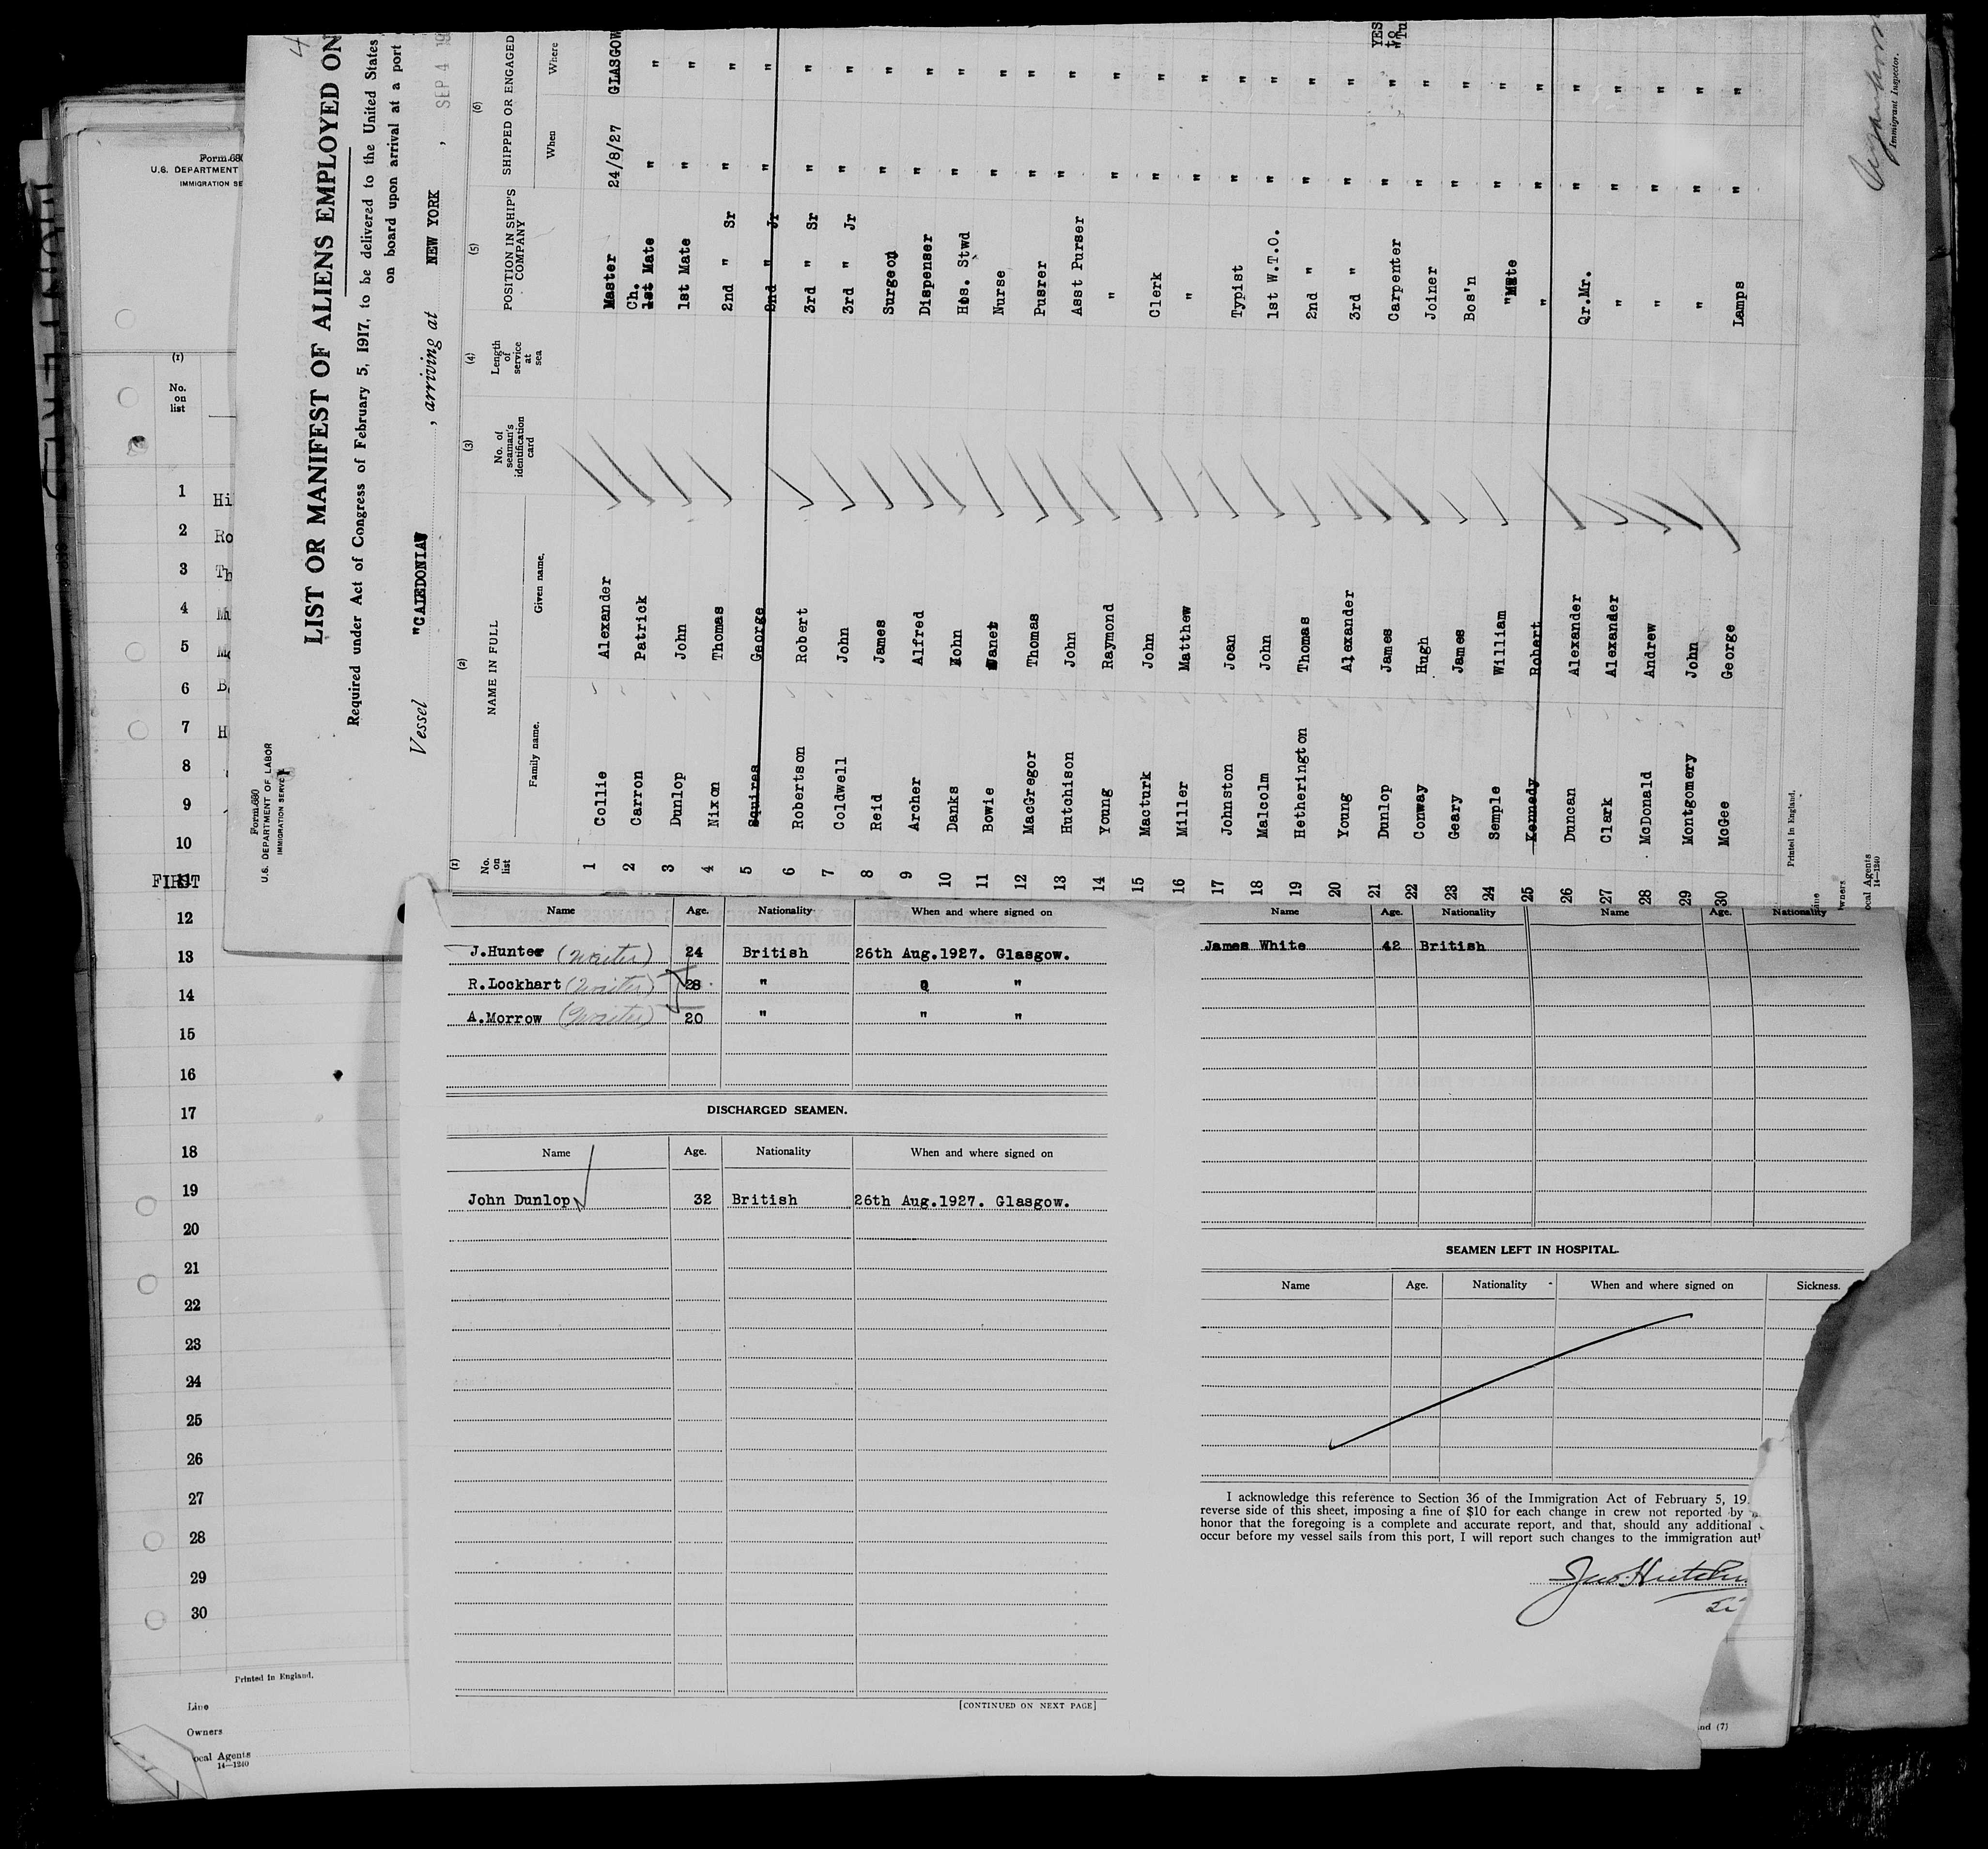 Form 680
U.S. DEPARTMENT OF LABOR
IMMIGRATION SERVICE
LIST OR MANIFEST OF ALIENS EMPLOYED ON
Required under Act of Congress of February 5, 1917, to be delivered to the United States
on board upon arrival at a port
Vessel "CALEDONIA" , arriving at NEW YORK , SEP 4 19
(1) (2) (3) (4) (5) (6)
No. on list NAME IN FULL No. of seaman's identification card Length of service at sea POSITION IN SHIP'S COMPANY SHIPPED OR ENGAGED
Family name. Given name. When Where
1 Collie Alexander Master 24/8/27 GLASGOW
2 Carron Patrick Ch. 1st Mate " "
3 Dunlop John 1st Mate " "
4 Nixon Thomas 2nd " Sr " "
5 Squires George 2nd " Jr " "
6 Robertson Robert 3rd " Sr " "
7 Coldwell John 3rd " Jr " "
8 Reid James Surgeon " "
9 Archer Alfred Dispenser " "
10 Danks John Hos. Stwd " "
11 Bowie Janet Nurse " "
12 MacGregor Thomas Pusrer " "
13 Hutchison John Asst Purser " "
14 Young Raymond " " "
15 Macturk John Clerk " "
16 Miller Matthew " " "
17 Johnston Joan Typist " "
18 Malcolm John 1st W.T.O. " "
19 Hetherington Thomas 2nd " " "
20 Young Alexander 3rd " " "
21 Dunlop James Carpenter " " YES
22 Conway Hugh Joiner " "
23 Geary James Bos'n " "
24 Semple William " Mate " "
25 Kennedy Robert " " "
26 Duncan Alexander Qr.Mr. " "
27 Clark Alexander " " "
28 McDonald Andrew " " "
29 Montgomery John " " "
30 McGee George Lamps " "
Printed in England.
Immigrant Inspector.
ocal Agents
14—1240
Form 680
U.S. DEPARTMENT
IMMIGRATION SE
(1)
No. on list
1 Hi
2 Ro
3 Th
4 Mu
5
6
7 H
8
9
10
FIRST
12
13
14
15
16
17
18
19
20
21
22
23
24
25
26
27
28
29
30
Printed in England.
Line
Owners
ocal Agents
14—1240
Name Age. Nationality When and where signed on
J.Hunter (Waiter) 24 British 26th Aug.1927. Glasgow.
R.Lockhart (Waiter) 28 " "
A.Morrow (Waiter) 20 " " "
DISCHARGED SEAMEN.
Name Age. Nationality When and where signed on
John Dunlop 32 British 26th Aug.1927. Glasgow.
[CONTINUED ON NEXT PAGE]
Name Age. Nationality Name Age. Nationality
James White 42 British
SEAMEN LEFT IN HOSPITAL.
Name Age. Nationality When and where signed on Sickness.
I acknowledge this reference to Section 36 of the Immigration Act of February 5, 19
reverse side of this sheet, imposing a fine of $10 for each change in crew not reported by
honor that the foregoing is a complete and accurate report, and that, should any additional
occur before my vessel sails from this port, I will report such changes to the immigration aut
nd (7)